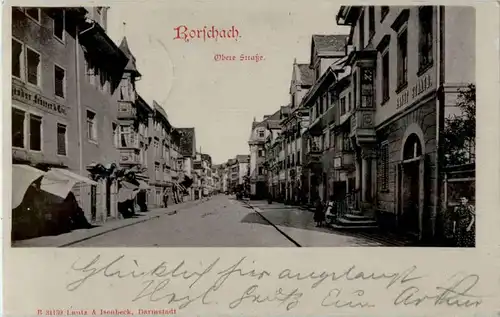 Rorschach.
Obere Straße.
Glücklich hier angelangt
Herzl. Grüße Eur Arthur
B 31139 Lautz & Isenbeck, Darmstadt